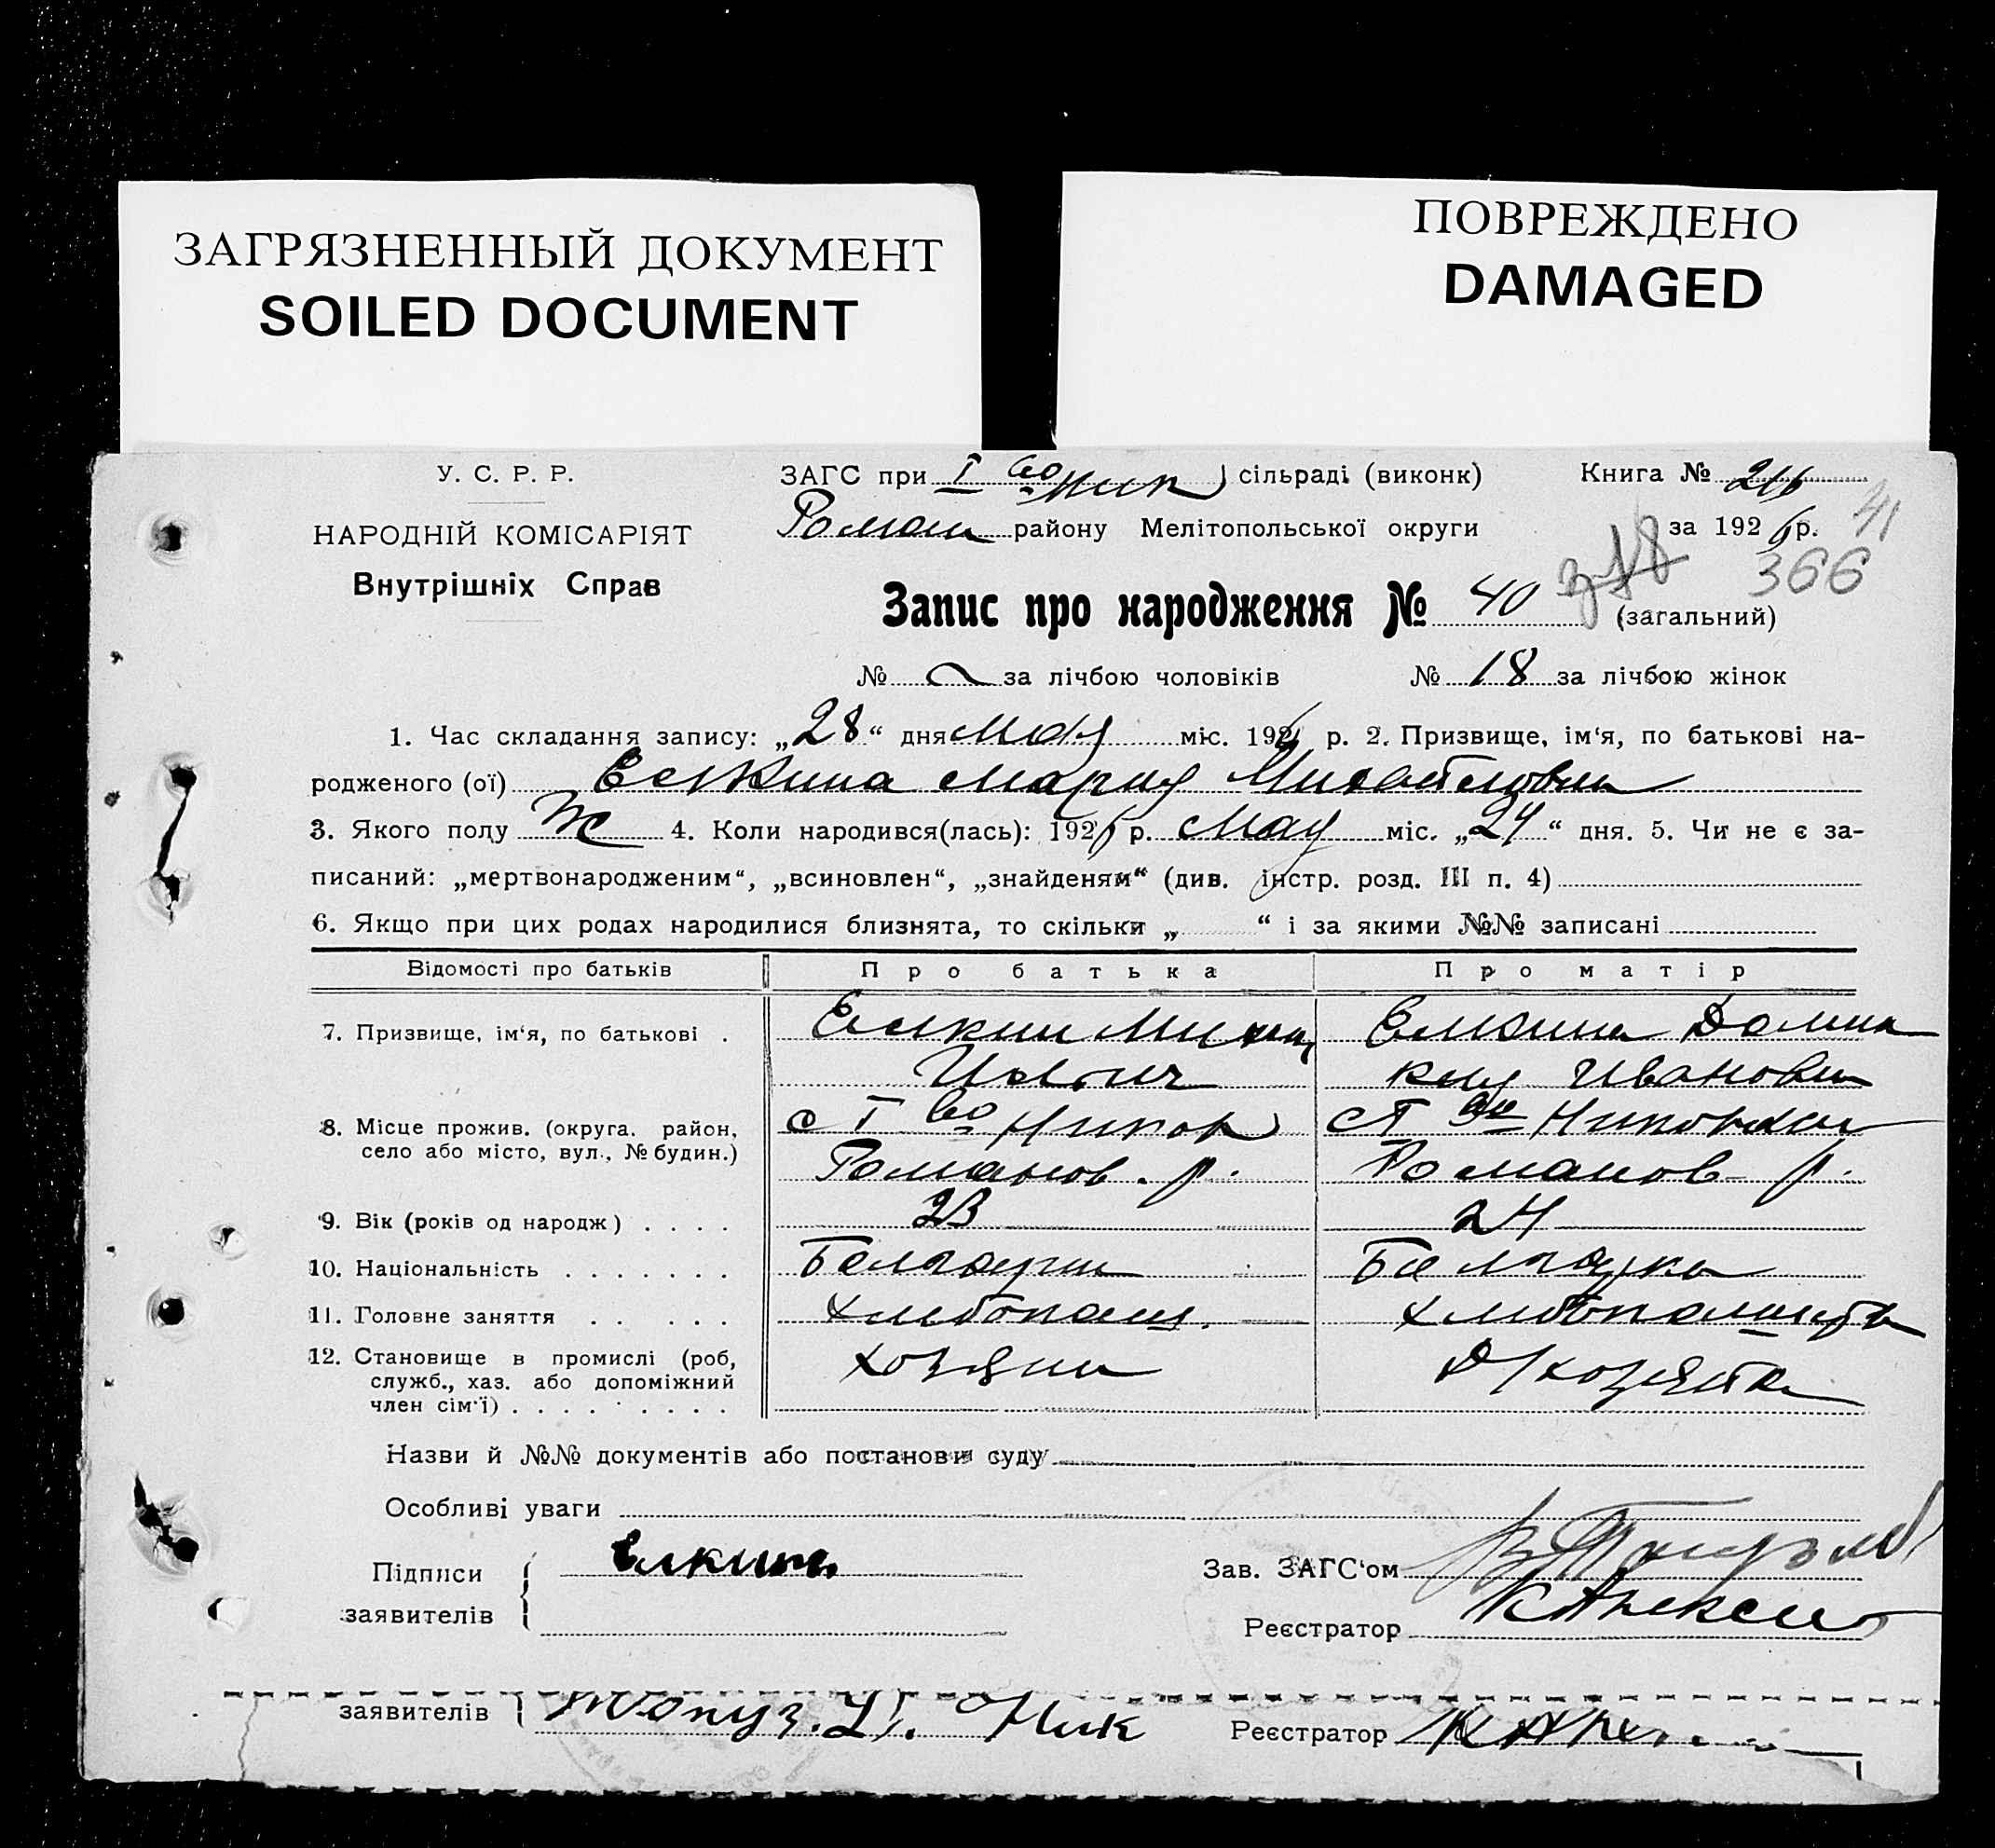 ЗАГРЯЗНЕННЫЙ ДОКУМЕНТ
SOILED DOCUMENT
ПОВРЕЖДЕНО
DAMAGED
У. С. Р. Р.
НАРОДНІЙ КОМІСАРІЯТ
Внутрішніх Справ
ЗАГС при I во Ник сільраді (виконк)
Роман району Мелітопольської округи
Книга №
за 1926 р. 41
366
Запис про народження № 40 (загальний)
№ за лічбою чоловіків № 18 за лічбою жінок
1. Час складання запису: „28“ дня Мая міс. 1926 р. 2. Призвище, ім‘я, по батькові на-
родженого (ої) Елкина Мария Михайловна
3. Якого полу Ж 4. Коли народився(лась): 1926 р. Мая міс. „24“ дня. 5. Чи не є за-
писаний: „мертвонародженим“, „всиновлен“, „знайденям“ (див. інстр. розд. III п. 4)
6. Якщо при цих родах народилися близнята, то скільки „ “ і за якими №№ записані
Відомості про батьків Про батька Про матір
7. Призвище, ім‘я, по батькові . Елкин Михаил Елкина Домни
Ильич кия Ивановна
8. Місце прожив. (округа, район, с I во Никол с I во Николаевка
село або місто, вул., № будин.) Романов. р. Романов р.
9. Вік (років од народж) . . . . 23 24
10. Національність . . . . . . . Болгарин Болгарка
11. Головне заняття . . . . . Хлебопаш.
12. Становище в промислі (роб, хозяин
служб., хаз. або допоміжний
член сім‘ї) . . . . . . . . .
Назви й №№ документів або постанови суду
Особливі уваги
Підписи Елкин
заявителів
Зав. ЗАГС‘ом
Реєстратор
заявителів Топуз. Ник
Реєстратор